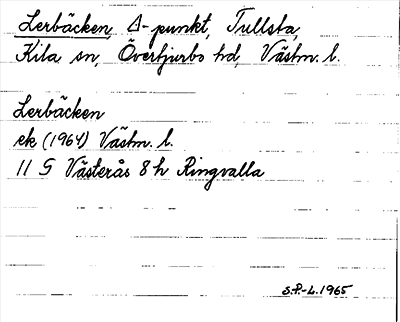 Lerbäcken, Δ-punkt, Tullsta,
Kila sn, Övertjurbo hd, Västm. l.
Lerbäcken
ek (1964) Västm. l.
11 G Västerås 8 h Ringvalla
S.P.-L. 1965